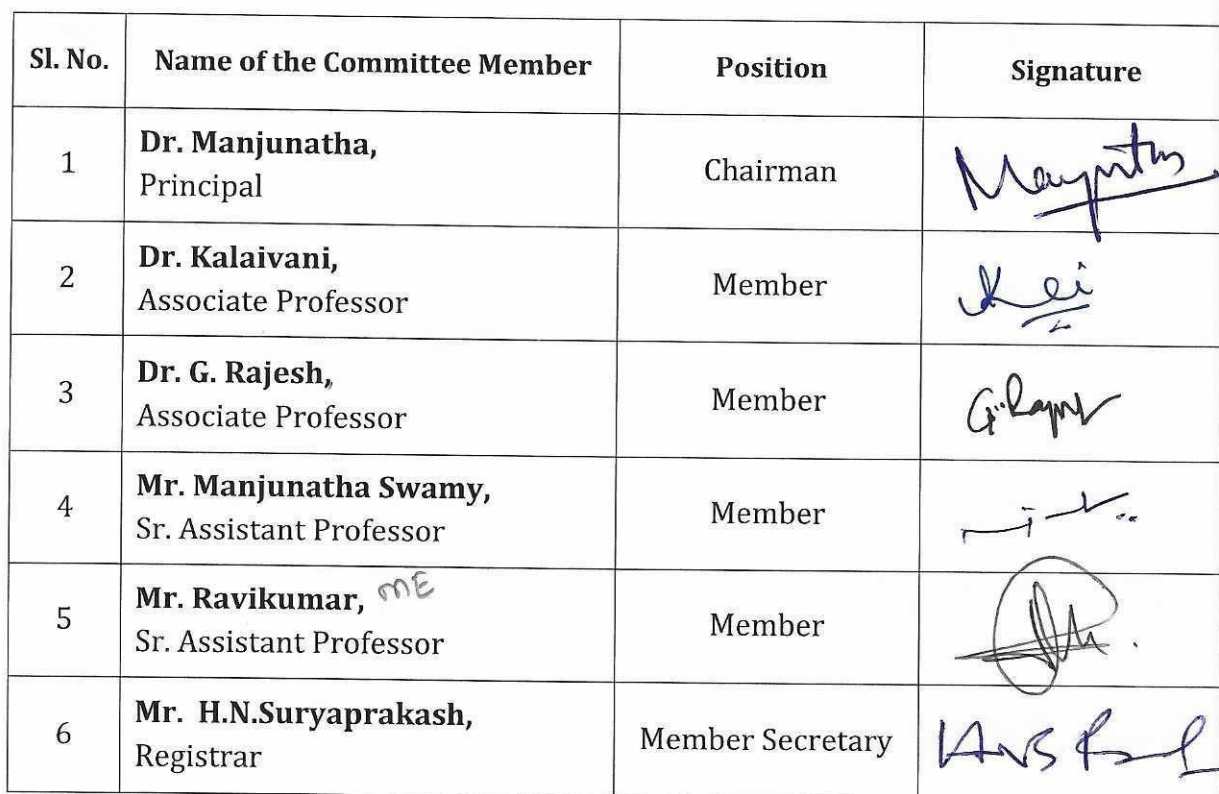 Sl. No. Name of the Committee Member Position Signature
1 Dr. Manjunatha,
Principal Chairman
2 Dr. Kalaivani,
Associate Professor Member
3 Dr. G. Rajesh,
Associate Professor Member
4 Mr. Manjunatha Swamy,
Sr. Assistant Professor Member
5 Mr. Ravikumar, ME
Sr. Assistant Professor Member
6 Mr. H.N.Suryaprakash,
Registrar Member Secretary